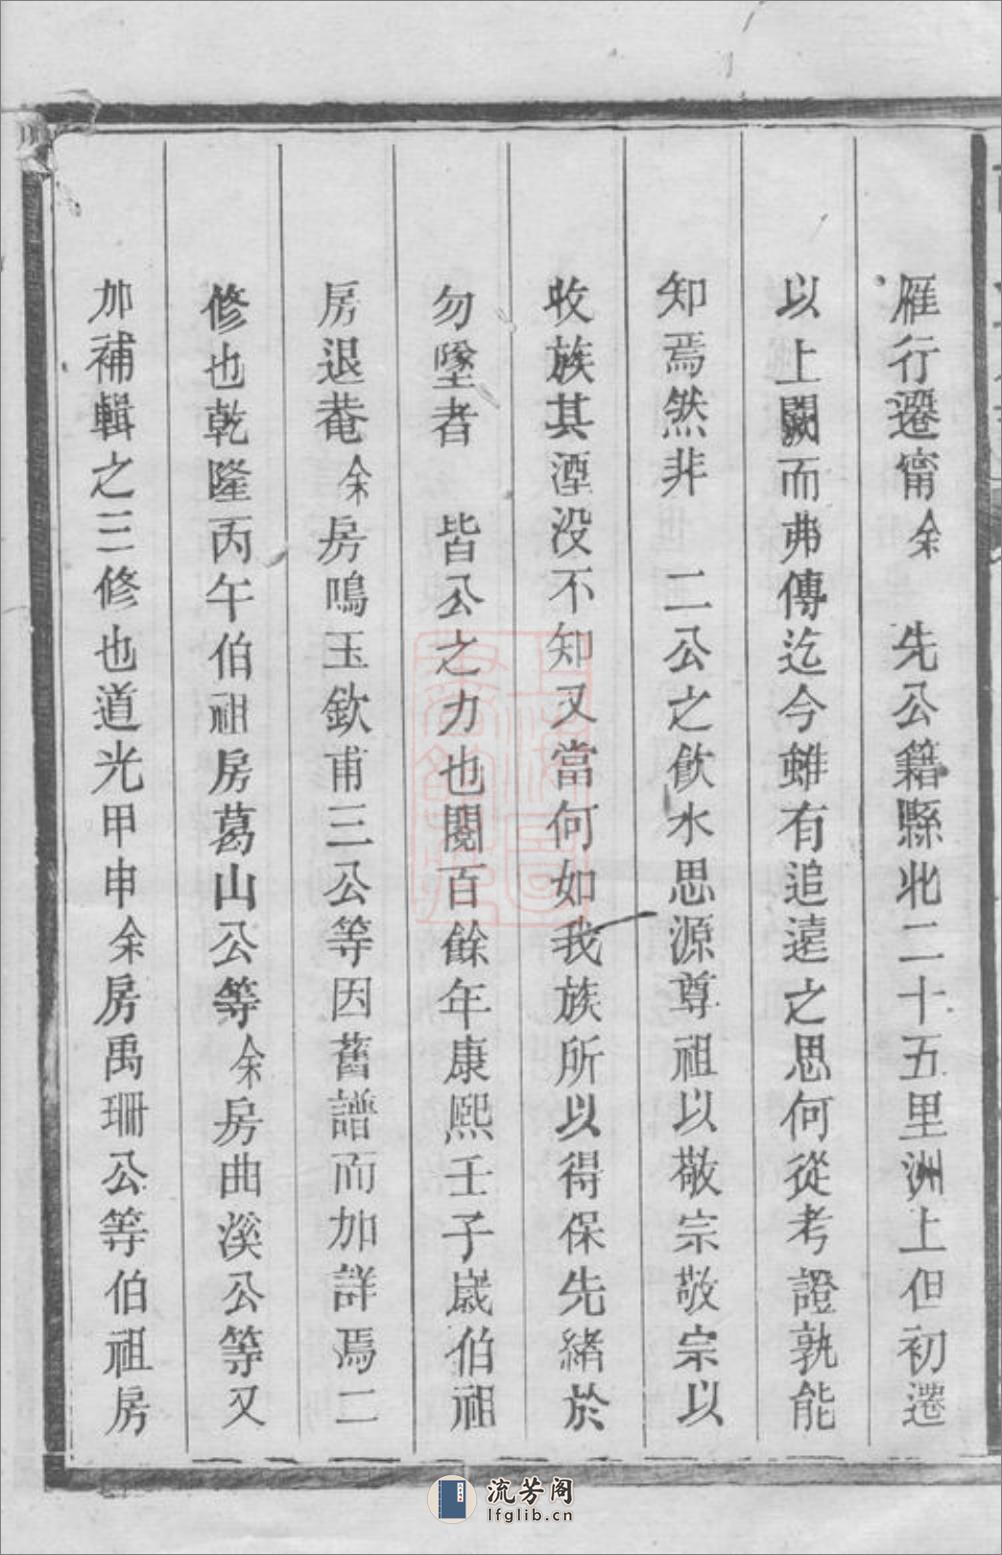 雁行遷甯余　先公籍縣北二十五里洲上但初遷
以上闕而弗傳迄今雖有追遠之思何從考證孰能
知焉然非　二公之飲水思源尊祖以敬宗敬宗以
收族其湮没不知又當何如我族所以得保先緒於
勿墜者　皆公之力也閱百餘年康熙壬子歲伯祖
房退菴余房鳴玉欽甫三公等因舊譜而加詳焉二
修也乾隆丙午伯祖房葛山公等余房曲溪公等又
加補輯之三修也道光甲申余房禹珊公等伯祖房
流芳阁
lfglib.cn